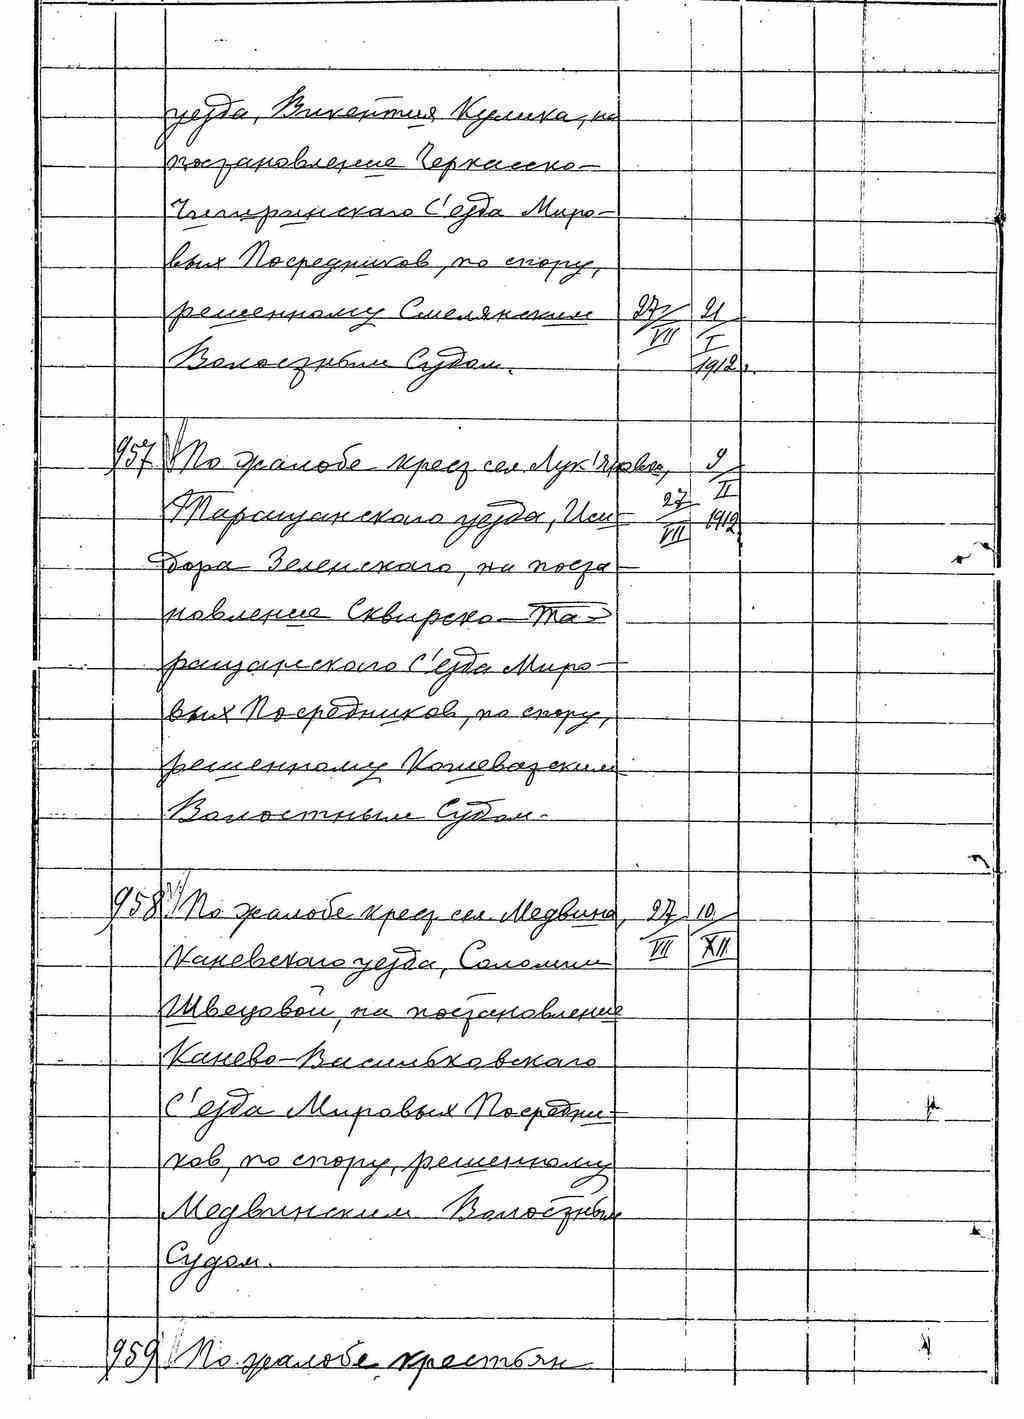 уезда, Викентия Кулика, на
постановление Черкасско-
Чигиринскаго С'езда Миро-
вых Посредников, по спору,
решенному Смелянским 27/VII 21/I
Волостным Судом. 1912 г.
957 По жалобе крест. сел. Лук'яновки, 9/II
Таращанскаго уезда, Иси- 27/VII 1912
дора Зеленскаго, на поста-
новление Сквирско-Та-
ращанскаго С'езда Миро-
вых Посредников, по спору,
решенному Кошеватским
Волостным Судом.
958 По жалобе крест. сел. Медвина, 27/VII 10/XII
Каневскаго уезда, Соломии
Швецовой, на постановление
Канево-Васильковскаго
С'езда Мировых Посредни-
ков, по спору, решенному
Медвинским Волостным
Судом.
959 По жалобе крестьян